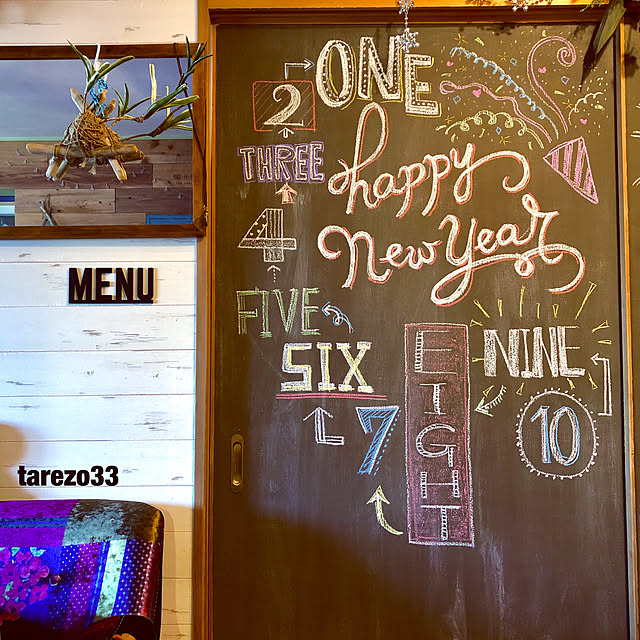 ONE
2
THREE
happy
New Year
4
MENU
FIVE
SIX
EIGHT
NINE
7
10
tarezo33